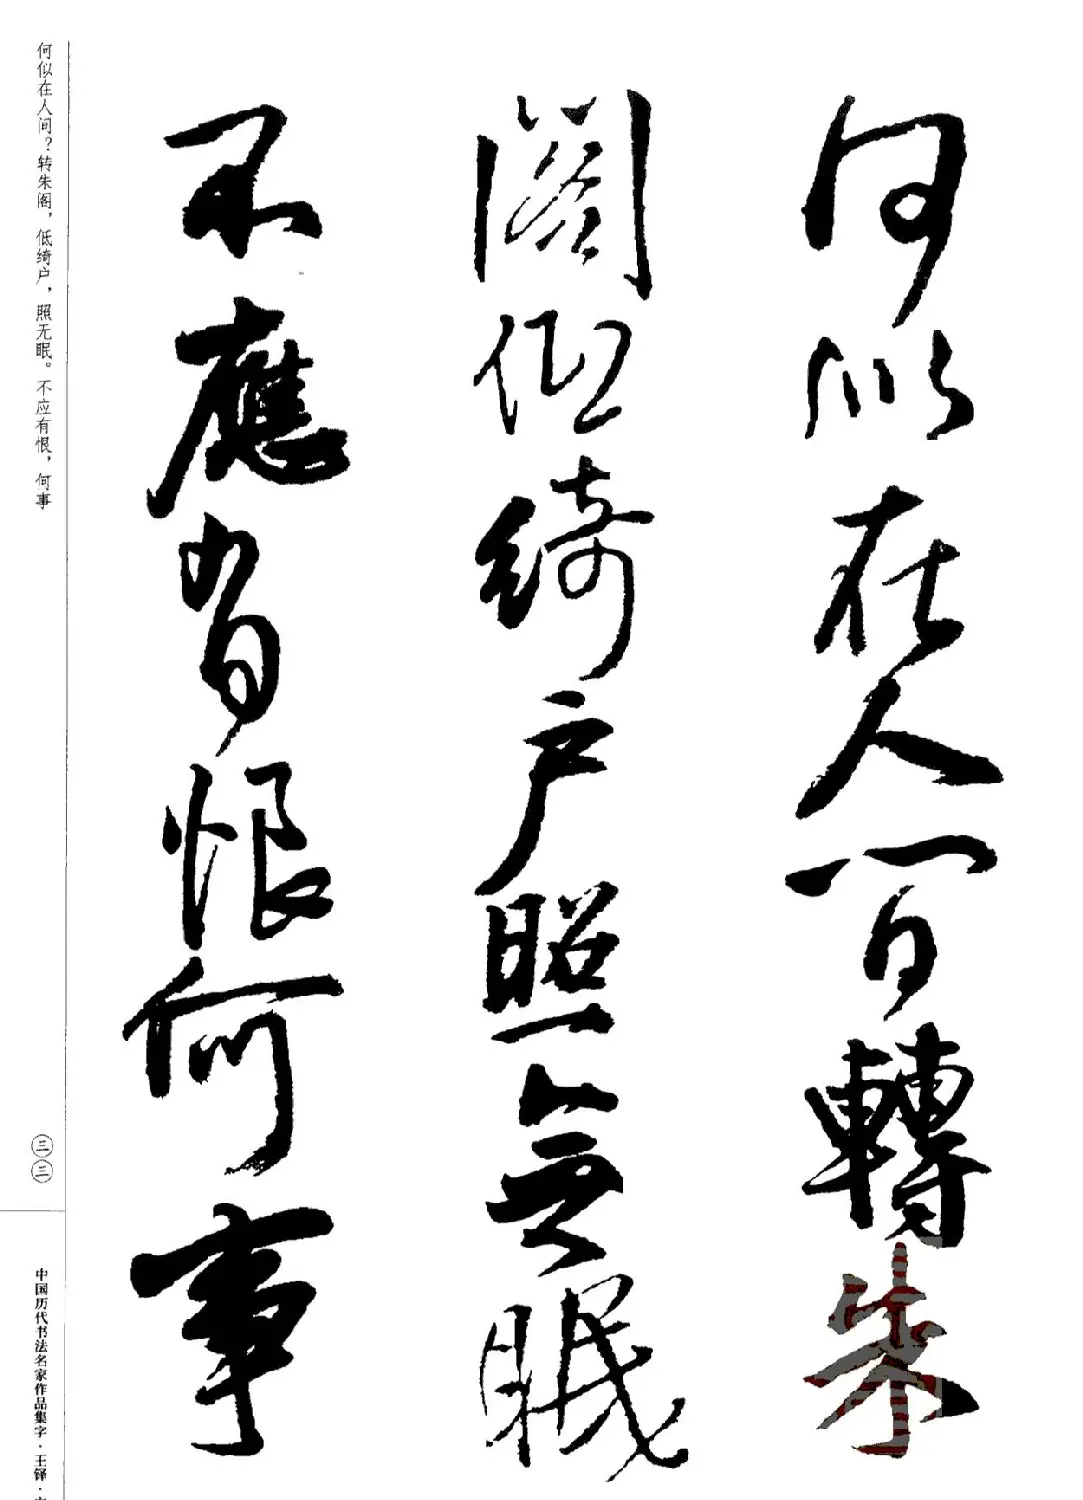 何似在人間轉朱
閣低綺户照無眠
不應有恨何事
何似在人间？转朱阁，低绮户，照无眠。不应有恨，何事
三三
中国历代书法名家作品集字·王铎·